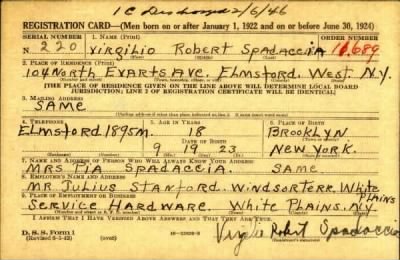 1C Discharged 2/6/46
REGISTRATION CARD—(Men born on or after January 1, 1922 and on or before June 30, 1924)
SERIAL NUMBER 1. NAME (Print) ORDER NUMBER
N 220 Virgilio Robert Spadaccia 11,689
2. PLACE OF RESIDENCE (Print)
104 North Evarts Ave. Elmsford. West N.Y.
[THE PLACE OF RESIDENCE GIVEN ON THE LINE ABOVE WILL DETERMINE LOCAL BOARD
JURISDICTION; LINE 2 OF REGISTRATION CERTIFICATE WILL BE IDENTICAL]
3. MAILING ADDRESS
SAME
4. TELEPHONE 5. AGE IN YEARS 6. PLACE OF BIRTH
Elmsford 1895M. 18 Brooklyn
DATE OF BIRTH
9 19 23 New York.
7. NAME AND ADDRESS OF PERSON WHO WILL ALWAYS KNOW YOUR ADDRESS
Mrs Pia Spadaccia. SAME
8. EMPLOYER'S NAME AND ADDRESS
Mr Julius Stanford. Windsor Terr. White Plains
9. PLACE OF EMPLOYMENT OR BUSINESS
Service Hardware. White Plains. N.Y.
I AFFIRM THAT I HAVE VERIFIED ABOVE ANSWERS AND THAT THEY ARE TRUE.
D. S. S. Form 1
Virgilio Robert Spadaccia